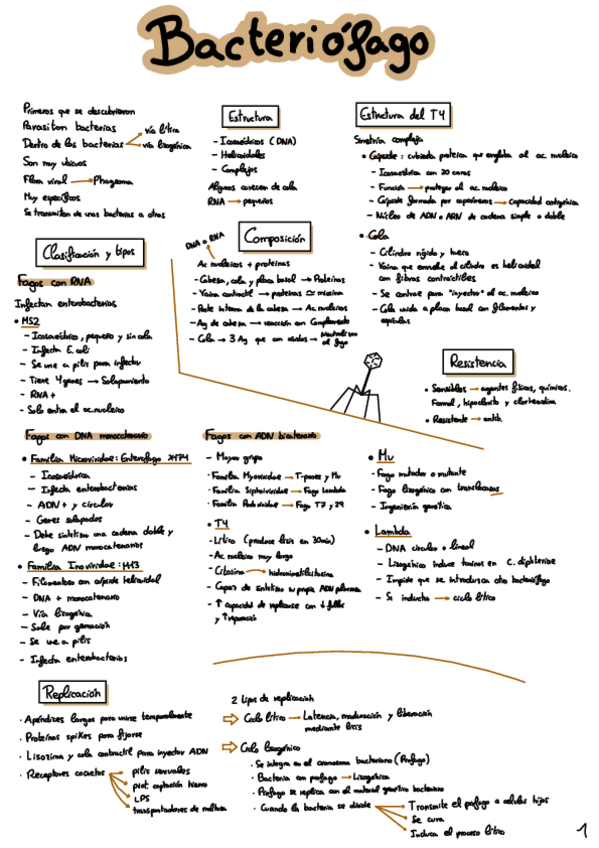 Bacteriófago
Primeros que se descubrieron
Parasitan bacterias
Dentro de las bacterias → vía lítica
→ vía lisogénica
Son muy ubicuos
Flora viral → Phagoma
Muy específicos
Se transmiten de unas bacterias a otras
Estructura
- Icosaédricos (DNA)
- Helicoidales
- Complejos
Algunos carecen de cola
RNA → pequeños
Estructura del T4
Simetría compleja
• Cápside: cubierta proteica que engloba al ac. nucleico
- Icosaédrica con 20 caras
- Función → proteger al ac. nucleico
- Cápside formada por capsómeros → Capacidad antigénica
- Núcleo de ADN o ARN de cadena simple o doble
• Cola
- Cilindro rígido y hueco
- Vaina que envuelve el cilindro es helicoidal
con fibras contráctiles
- Se contrae para "inyectar" el ac. nucleico
- Cola unida a placa basal con filamentos y
espículas
Clasificación y tipos
Fagos con RNA
Infectan enterobacterias
• MS2
- Icosaédrico, pequeño y sin cola
- Infecta E. coli
- Se une a pilis para infectar
- Tiene 4 genes → Solapamiento
- RNA +
- Solo entra el ac. nucleico
Composición
DNA o RNA
Ac nucleicos + proteínas
- Cabeza, cola y placa basal → Proteínas
- Vaina contráctil → proteínas ≃ miosina
- Parte interna de la cabeza → Ac. nucleicos
- Ag de cabeza → reacción con Complemento
- Cola → 3 Ag que con → Neutralizan
al fago
Resistencia
• Sensibles → agentes físicos, químicos.
Formol, hipoclorito y clorhexidina
• Resistente → antib.
Fagos con DNA monocatenario
• Familia Microviridae: Enterofago
- Icosaédrica
- Infecta enterobacterias
- ADN + y circular
- Genes solapados
- Debe sintetizar una cadena doble y
luego ADN monocatenarios
• Familia Inoviridae: M13
- Filamentoso con aspecto helicoidal
- DNA + monocatenario
- Vía lisogénica
- Sale por gemación
- Se une a pilis
- Infecta enterobacterias
Fagos con ADN bicatenario
- Mayor grupo
· Familia Myoviridae → T-pares y Mu
· Familia Siphoviridae → Fago Lambda
· Familia Podoviridae → Fago T7 y 29
• T4
- Lítico (produce lisis en 30min)
- Ac nucleico muy largo
- Citosina → hidroximetilcitosina
- Capaz de sintetizar su propia ADN polimerasa
- ↑ capacidad de replicarse con ↓ fallos
y ↑ reparación
• Mu
- Fago mutador o mutante
- Fago lisogénico con transposasas
- Ingeniería genética
• Lambda
- DNA circular o lineal
- Lisogénico induce toxinas en C. diphteriae
- Impide que se introduzca otro bacteriófago
- Si inductor → ciclo lítico
Replicación
· Apéndices largos para unirse temporalmente
· Proteínas spikes para fijarse
· Lisozima y cola contráctil para inyectar ADN
· Receptores concretos → pilis sexuales
→ prot. captación hierro
→ LPS
→ transportadores de maltosa
2 tipos de replicación
⇨ Ciclo lítico → Latencia, maduración y liberación
mediante lisis
⇨ Ciclo lisogénico
· Se integra en el cromosoma bacteriano (Profago)
· Bacteria con profago → Lisogénica
· Profago se replica con el material genético bacteriano
· Cuando la bacteria se divide → Transmite el profago a células hijas
→ Se cura
→ Induce el proceso lítico
1